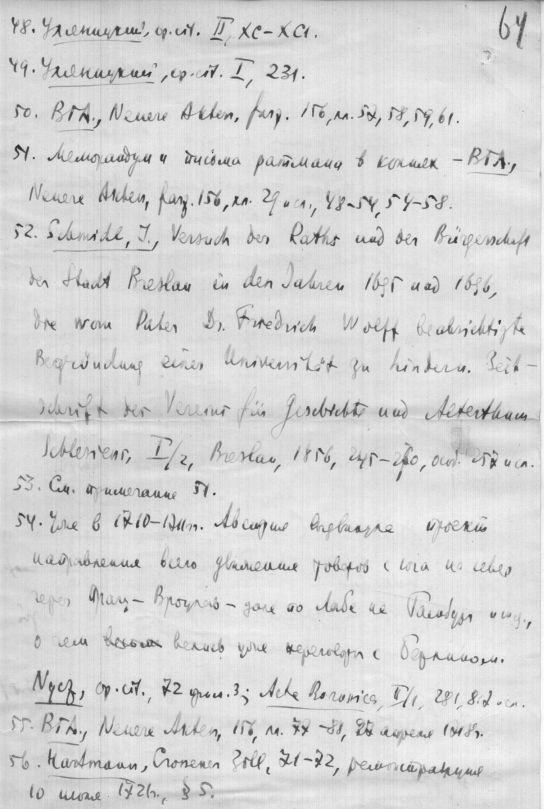 64
48. Уляницкий, op. cit. II, XC–XCI.
49. Уляницкий, op. cit. I, 231.
50. ВГА., Neuere Akten, fasz. 156, лл. 57, 58, 59, 61.
51. Меморандум и письма ратманы в – ВГА.,
Neuere Akten, fasz. 156, лл. 29 исл., 48–54, 54–58.
52. Schmidt, J., Versuch des Raths und der Bürgerschaft
der Stadt Breslau in den Jahren 1695 und 1696,
die vom Pater Dr. Friedrich Wolff beabsichtigte
Begründung einer Universität zu hindern. Zeit-
schrift des Vereins für Geschichte und Alterthum
Schlesiens, I/2, Breslau, 1856, 245–270, 257 исл.
53. См. примечание 51.
54. Уже в 1710–1711гг. Австрия выдвинула проект
направления всего движения товаров с юга на север
через – Вроцлав – далее по Лабе на Гамбург
о чем велись уже переговоры с Берлином.
Nycz, op. cit., 72 прим. 3; Acta Borussica, II/1, 281, 827 исл.
55. ВГА., Neuere Akten, 156, лл. 77–81, 27 апреля 1718г.
56. Hartmann, Crossener Zoll, 71–72, ремонстрация
10 июня 1726г., § 5.